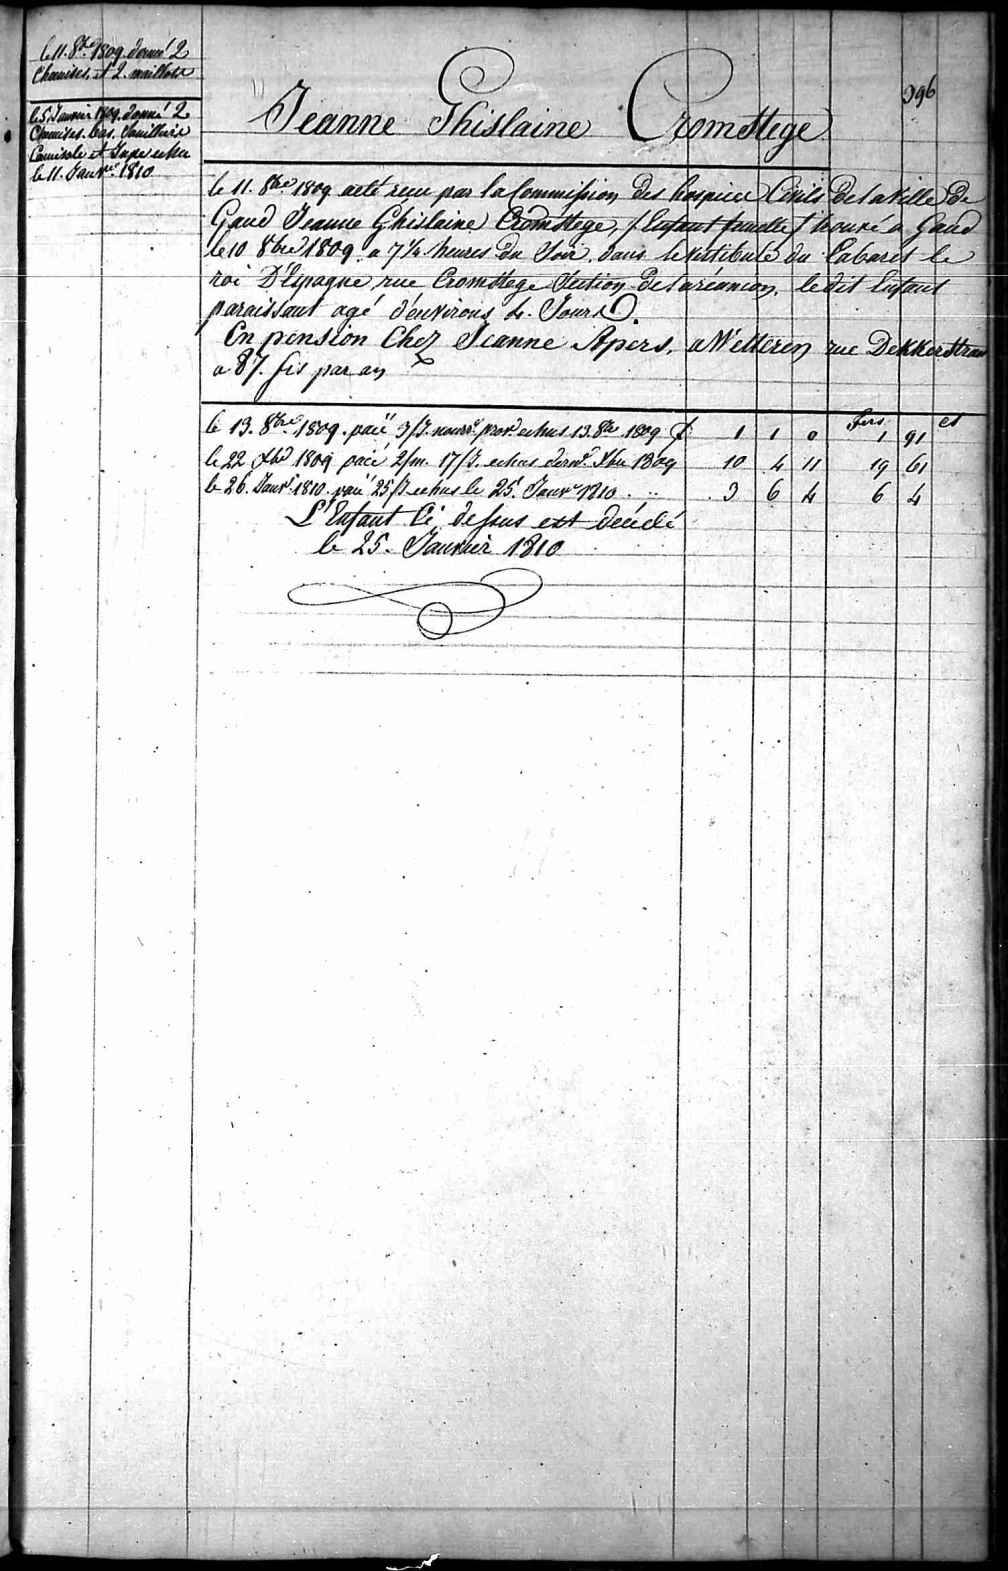 996
le 11. 8bre 1809. donné 2
Chemises. et 2. maillots
le 5. Janvier 1809. donné 2
Chemises. bas.
Camisole et Jupe
le 11. Janvr. 1810
Jeanne Ghislaine Cromstege
le 11. 8bre 1809 acté recu par la Commission des hospice Civils De la Ville De
Gand Jeanne Ghislaine Cromstege, /Enfant femelle/ trouvé a Gand
le 10 8bre 1809. a 7 1/4 heures Du Soir. dans le vestibule du Cabaret le
roi D'Espagne rue Cromstege Section De le dit Enfant
paraissant agé d'environs 4. Jours.
En pension Chez Jeanne Apers. a Wetteren rue Dekkerstraat
a 87. frs par an
frs ct
le 13. 8bre. 1809. paié 3/J. nourr. prov. echus 13. 8bre 1809 £ 1 1 0 1 91
le 22 Xbre 1809 paié 2/m. 17/J. echus Xbre 1809 10 4 11 19 61
le 26. Janvr. 1810. paié 25/J echus le 25. Janvr 1810. 3 6 4 6 4
L'Enfant Ci dessus est Décédé
le 25. Janvier 1810